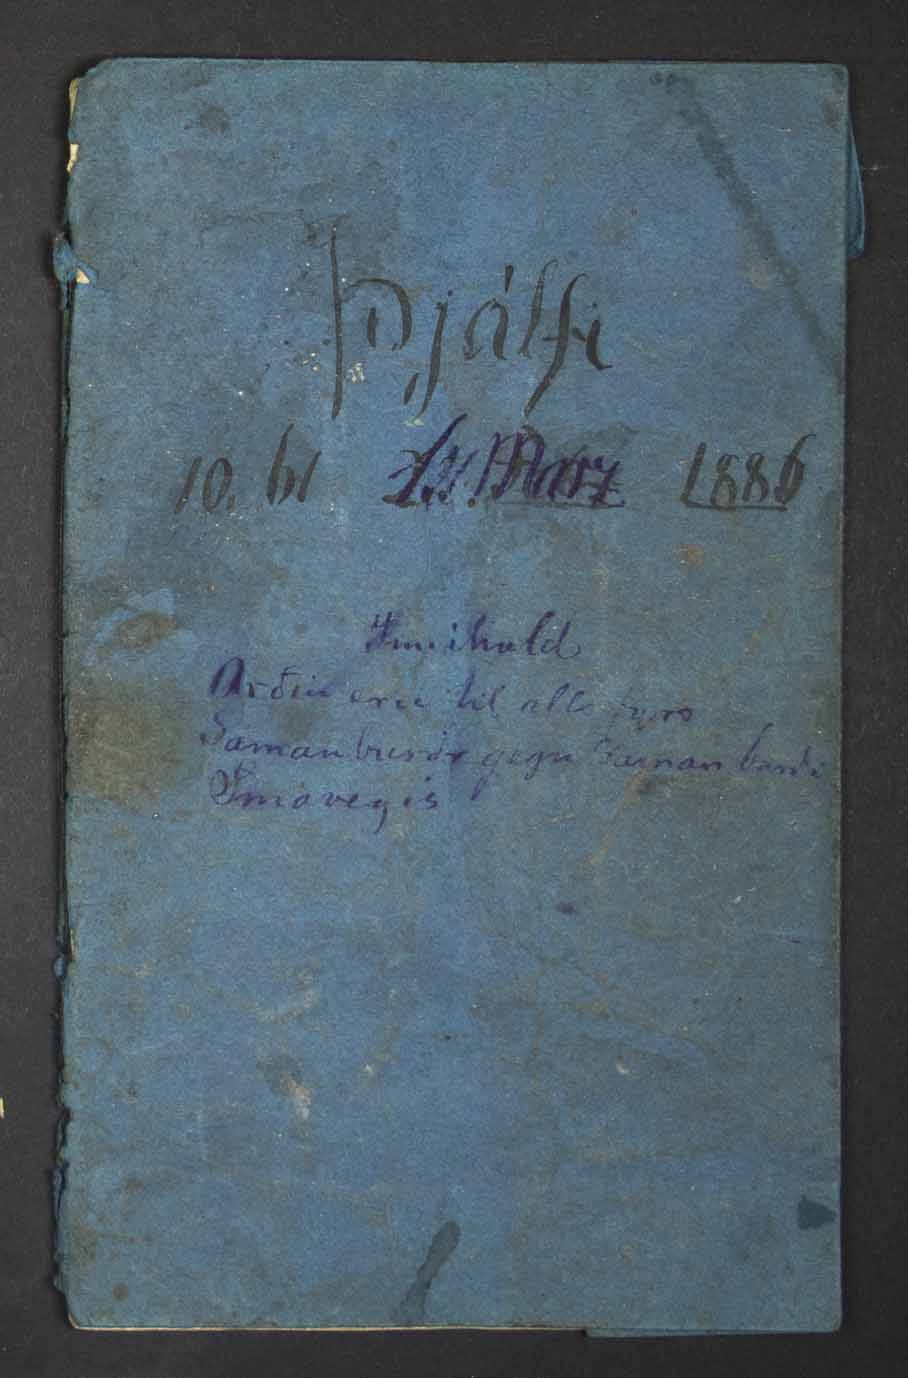 Þjálfi
10. bl. Marz 1886
Innihald
Orðin eru til alls fyrs
Samanburðr gegn Samanburði
Smávegis